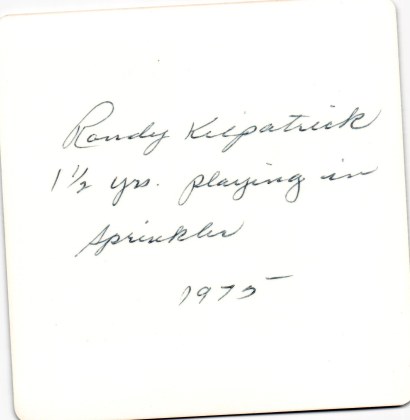 Randy Kilpatrick
1 1/2 yrs. playing in
sprinkler
1975